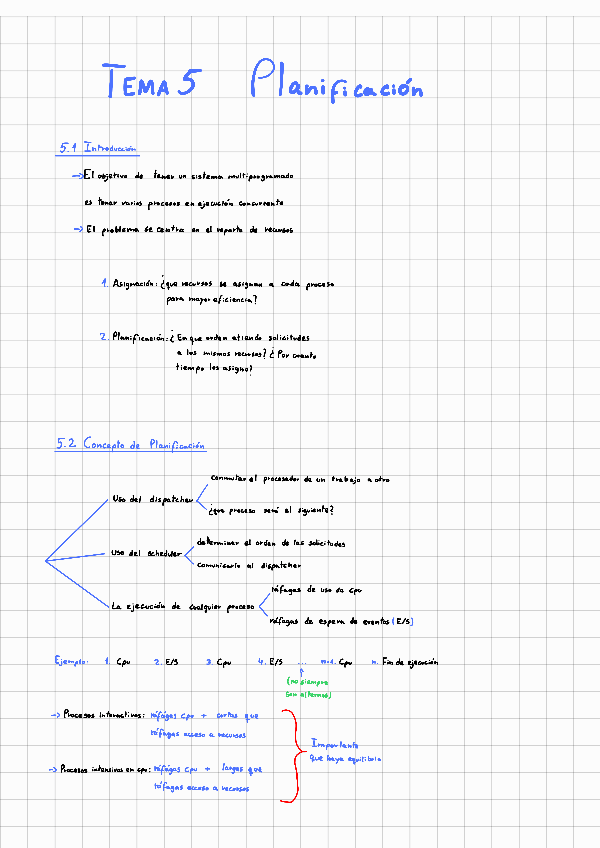 TEMA 5 Planificación
5.1 Introducción
→ El objetivo de tener un sistema multiprogramado
es tener varios procesos en ejecución concurrente
→ El problema se centra en el reparto de recursos
1. Asignación: ¿que recursos se asignan a cada proceso
para mayor eficiencia?
2. Planificación: ¿En que orden atiendo solicitudes
a los mismos recursos? ¿Por cuanto
tiempo los asigno?
5.2 Concepto de Planificación
conmutar el procesador de un trabajo a otro
Uso del dispatcher
¿que proceso será el siguiente?
determinar el orden de las solicitudes
Uso del scheduler
comunicarlo al dispatcher
ráfagas de uso de cpu
La ejecución de cualquier proceso
ráfagas de espera de eventos (E/S)
Ejemplo: 1. Cpu 2. E/S 3. Cpu 4. E/S ... n-1. Cpu n. Fin de ejecución
(no siempre
son alternos)
→ Procesos Interactivos: ráfagas cpu + cortas que
ráfagas acceso a recursos
Importante
que haya equilibrio
→ Procesos intensivos en cpu: ráfagas cpu + largas que
ráfagas acceso a recursos